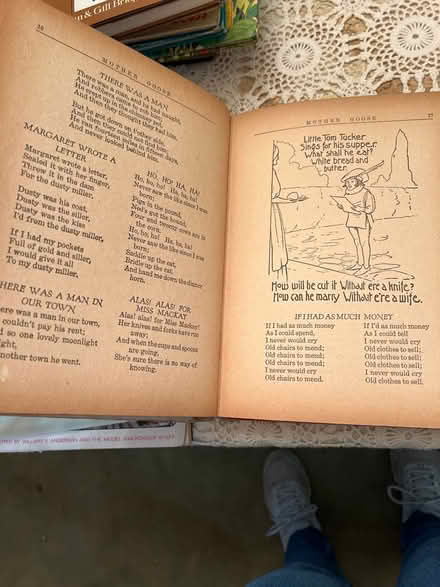 & Gill
MOTHER GOOSE
THERE WAS A MAN
There was a man, and he had naught,
And robbers came to rob him;
He crept up to the
And then they thought they had him.
But he got down on t'other side,
And then they could not find him.
He ran fourteen miles in fifteen days,
And never looked behind him.
MARGARET WROTE A
LETTER
Margaret wrote a letter,
Sealed it with her finger,
Threw it in the dam
For the dusty miller.
Dusty was his coat,
Dusty was the siller,
Dusty was the kiss
I'd from the dusty miller.
If I had my pockets
Full of gold and siller,
I would give it all
To my dusty miller.
HERE WAS A MAN IN
OUR TOWN
ere was a man in our town,
couldn't pay his rent;
so one lovely moonlight
ight,
nother town he went.
HO, HO! HA, HA!
Ho, ho, ho! Ha, ha, ha!
Never saw the like since I was
born;
Pigs in the pound,
Ned's got the hound,
Four and twenty cows are in
the corn.
Ho, ho, ho! Ha, ha, ha!
Never saw the like since I was
born;
Saddle up the cat,
Bridle up the rat,
And hand me down the dinner
horn.
ALAS! ALAS! FOR
MISS MACKAY
Alas! alas! for Miss Mackay!
Her knives and forks have run
away;
And when the cups and spoons
are going,
She's sure there is no way of
knowing.
MOTHER GOOSE
Little Tom Tucker
Sings for his supper.
What shall he eat?
White bread and
butter.
How will he cut it Without e're a knife?
How can he marry Without e're a wife.
IF I HAD AS MUCH MONEY
If I had as much money
As I could spend,
I never would cry
Old chairs to mend;
Old chairs to mend;
Old chairs to mend;
I never would cry
Old chairs to mend.
If I'd as much money
As I could tell
I never would cry
Old clothes to sell;
Old clothes to sell;
Old clothes to sell;
I never would cry
Old clothes to sell.